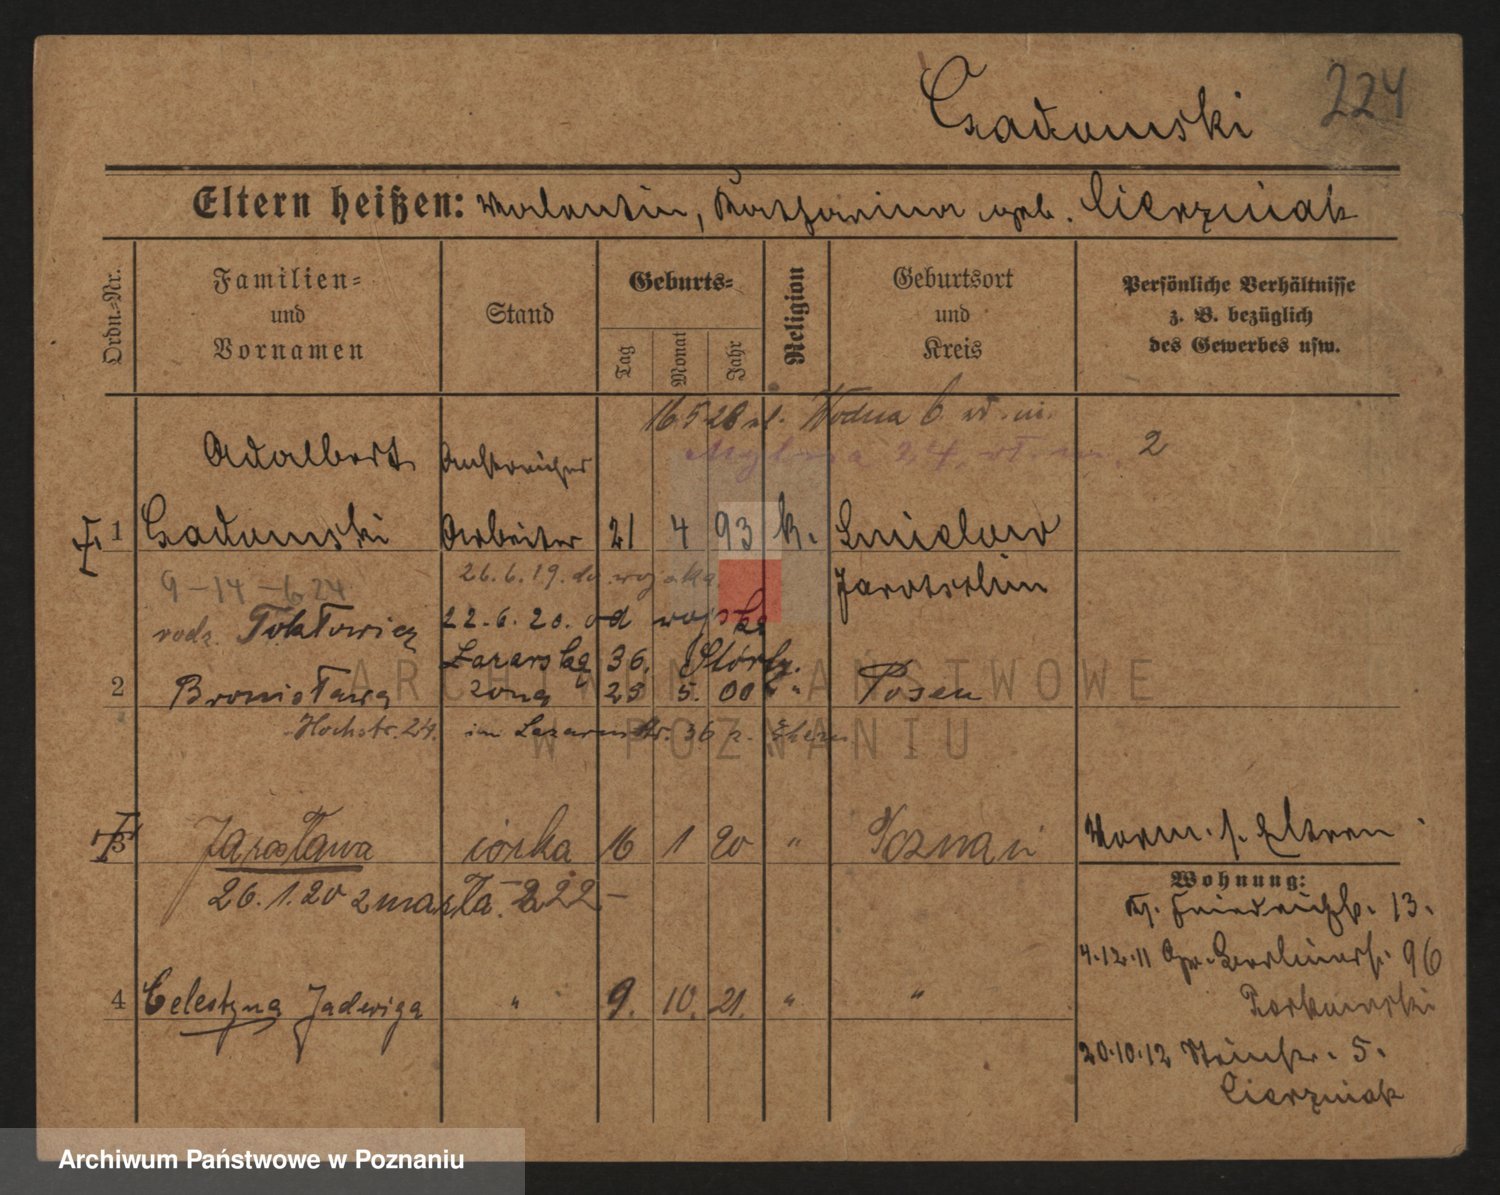 224
Czadomski
Eltern heißen: Valentin, Katharina geb. Cierzniak
Ordn.-Nr.
Familien- und Vornamen
Stand
Geburts-
Tag
Monat
Jahr
Religion
Geburtsort und Kreis
Persönliche Verhältnisse z. B. bezüglich des Gewerbes usw.
16 5 28 ul. Wodna 6
24
2
Adalbert
Anstreicher
1 Czadomski Arbeiter 21 4 93 k.
Jarotschin
9-14-6 24
26.6.19. do wojska
rodz. 22.6.20. od wojska
Lazarska 36.
2 Bronisława żona 25 5. 00 " " Posen
Hochstr. 24. im Lazarusstr. 36 b. Eltern
3 Jarosława córka 16 1 20 " Poznań
Vorm. s. Eltern
26.1.20 zmarła 222-
Wohnung:
Friedrichstr. 13.
4.12.11 Gr. Berlinerstr. 96
4 Celestyna Jadwiga " 9. 10. 21. " "
20.10.12 Steinstr. 5.
Cierzniak
ARCHIWUM PAŃSTWOWE
W POZNANIU
Archiwum Państwowe w Poznaniu